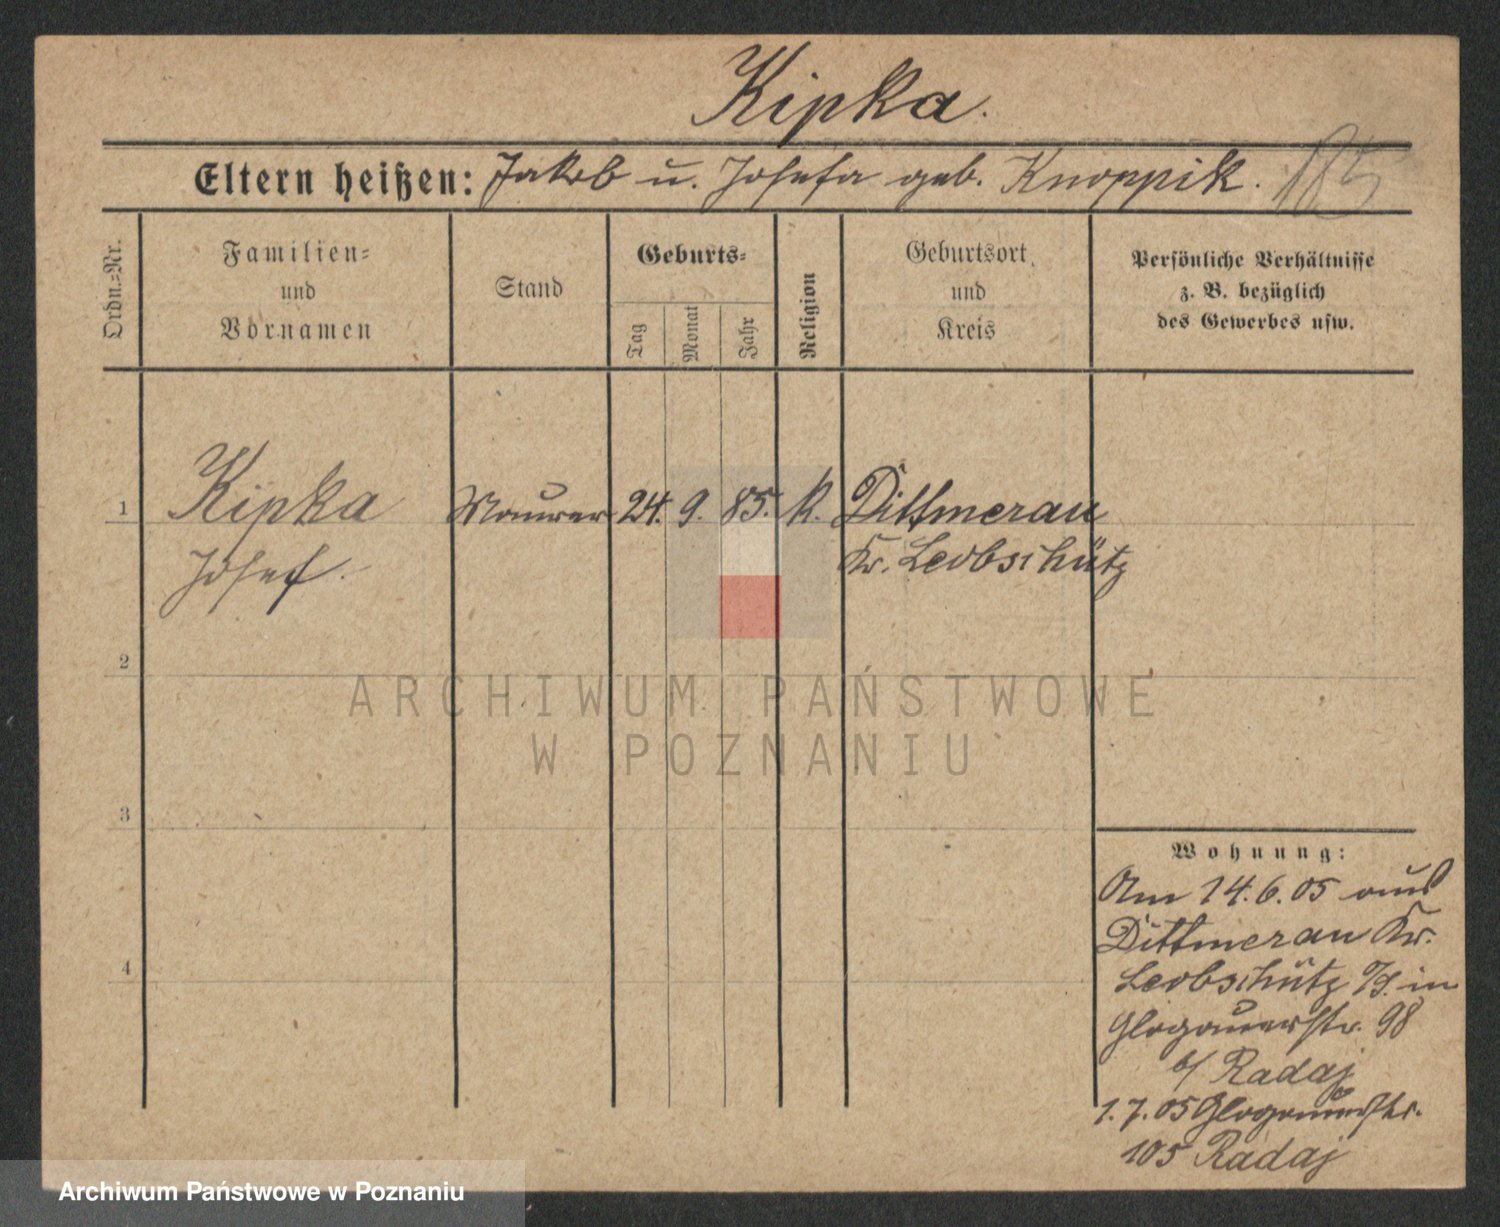 Kipka.
Eltern heißen: Jakob u. Josefa geb. Knoppik. 185
Ordn.-Nr.
Familien-
und
Vornamen
Stand
Geburts-
Tag
Monat
Jahr
Religion
Geburtsort
und
Kreis
Persönliche Verhältnisse
z. B. bezüglich
des Gewerbes usw.
1 Kipka Maurer 24. 9. 85. k. Dittmerau
Josef. Kr. Leobschütz
2
ARCHIWUM PAŃSTWOWE
W POZNANIU
3
Wohnung:
Am 14.6.05 aus
Dittmerau Kr.
Leobschütz O/S. in
4
Glogauerstr. 98
b/ Radaj
1.7.05 Glogauerstr.
105 Radaj
Archiwum Państwowe w Poznaniu